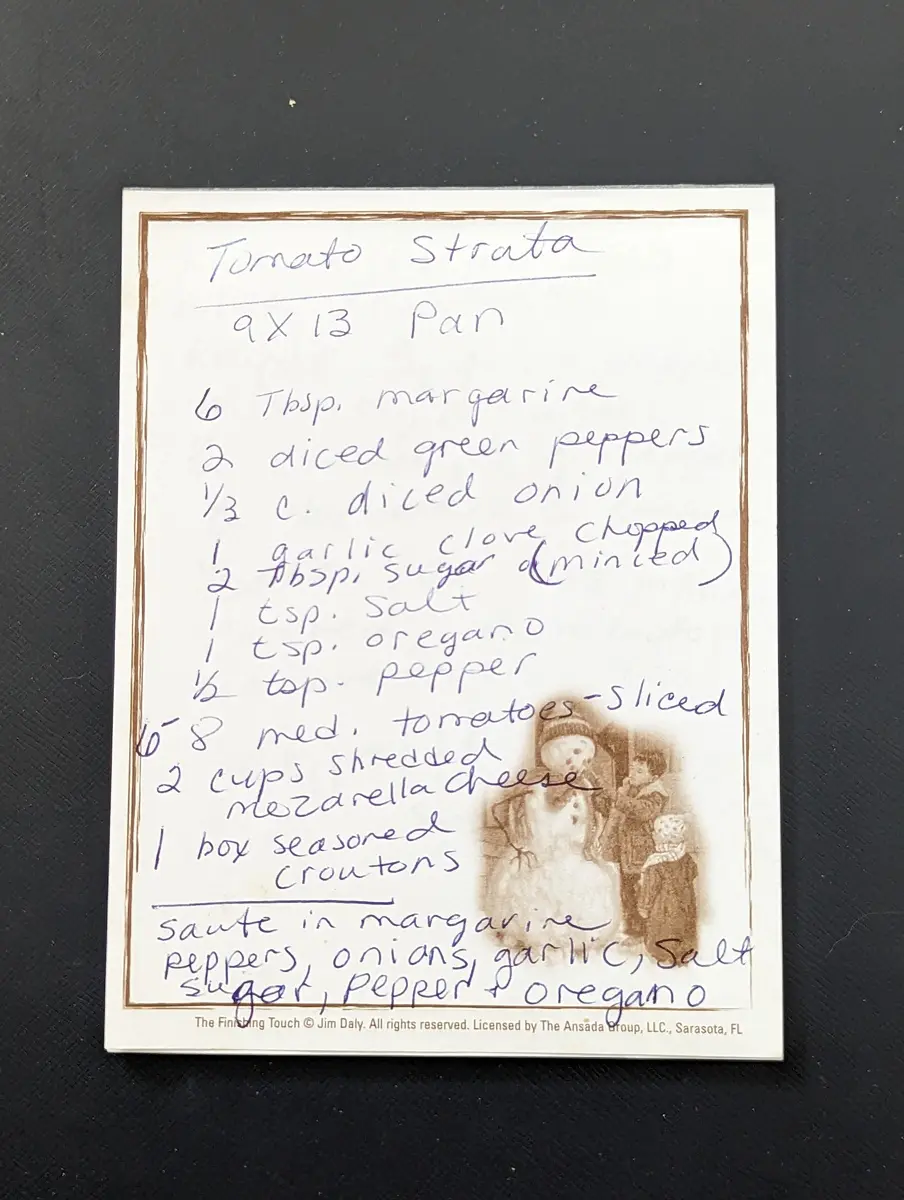 Tomato Strata
9X13 Pan
6 Tbsp. margarine
2 diced green peppers
1/3 c. diced onion
1 garlic clove chopped
2 tbsp. sugar (minced)
1 tsp. salt
1 tsp. oregano
1/2 tsp. pepper
6-8 med. tomatoes-sliced
2 cups shredded
mozarella cheese
1 box seasoned
croutons
saute in margarine
peppers, onions, garlic, salt
sugar, pepper + oregano
The Finishing Touch © Jim Daly. All rights reserved. Licensed by The Ansada Group, LLC., Sarasota, FL